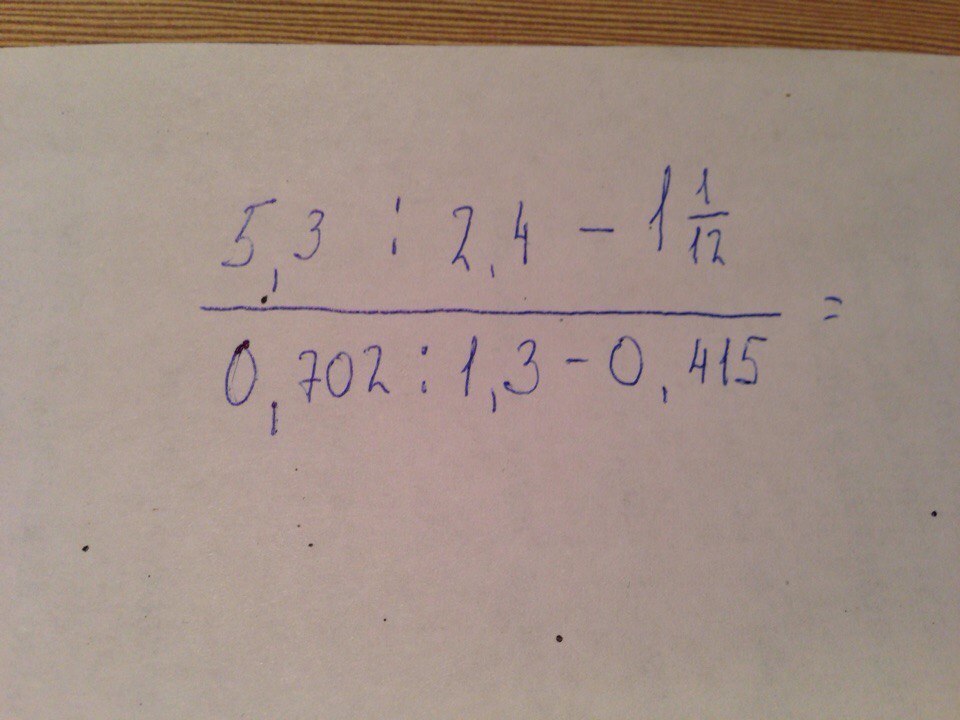 5,3 : 2,4 - 1 1/12
0,702 : 1,3 - 0,415 =